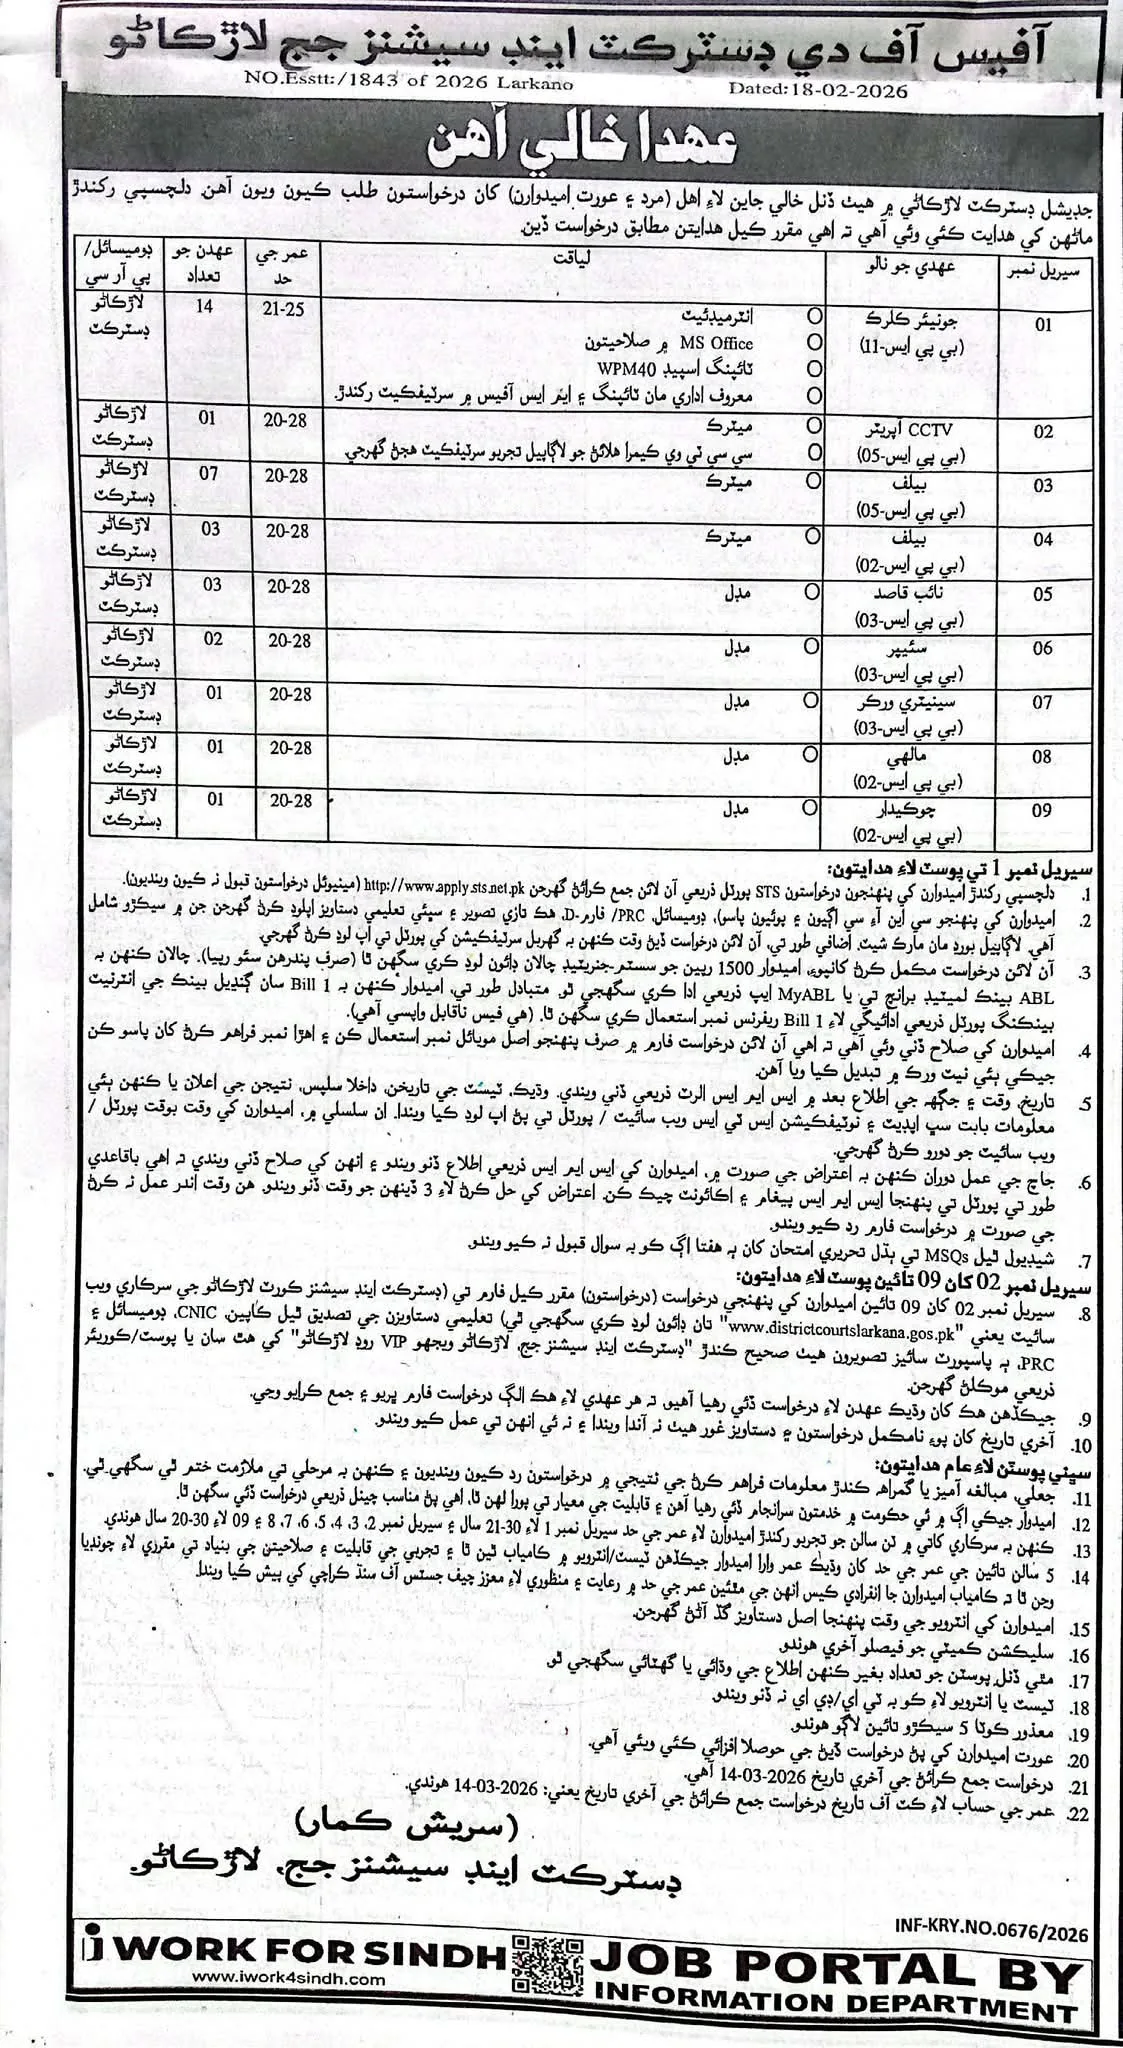 آفيس آف دي ڊسٽرڪٽ اينڊ سيشنز جج لاڙڪاڻو
NO.Esstt:/1843 of 2026 Larkano Dated:18-02-2026
عهدا خالي آهن
جڊيشل ڊسٽرڪٽ لاڙڪاڻي ۾ هيٺ ڏنل خالي جاين لاءِ اهل (مرد ۽ عورت اميدوارن) کان درخواستون طلب ڪيون ويون آهن. دلچسپي رکندڙ
ماڻهن کي هدايت ڪئي وئي آهي ته اهي مقرر ڪيل هدايتن مطابق درخواست ڏين.
سيريل نمبر عهدي جو نالو لياقت عمر جي حد عهدن جو تعداد ڊوميسائل/ پي آر سي
01 جونيئر ڪلرڪ (بي پي ايس-11) 21-25 14 لاڙڪاڻو ڊسٽرڪٽ
O انٽرميڊئيٽ
O MS Office ۾ صلاحيتون
O ٽائپنگ اسپيڊ WPM40
O معروف اداري مان ٽائپنگ ۽ ايم ايس آفيس ۾ سرٽيفڪيٽ رکندڙ.
02 CCTV آپريٽر (بي پي ايس-05) 20-28 01 لاڙڪاڻو ڊسٽرڪٽ
O ميٽرڪ
O سي سي ٽي وي ڪيمرا هلائڻ جو لاڳاپيل تجربو سرٽيفڪيٽ هجڻ گهرجي.
03 بيلف (بي پي ايس-05) O ميٽرڪ 20-28 07 لاڙڪاڻو ڊسٽرڪٽ
04 بيلف (بي پي ايس-02) O ميٽرڪ 20-28 03 لاڙڪاڻو ڊسٽرڪٽ
05 نائب قاصد (بي پي ايس-03) O مڊل 20-28 03 لاڙڪاڻو ڊسٽرڪٽ
06 سئيپر (بي پي ايس-03) O مڊل 20-28 02 لاڙڪاڻو ڊسٽرڪٽ
07 سينيٽري ورڪر (بي پي ايس-03) O مڊل 20-28 01 لاڙڪاڻو ڊسٽرڪٽ
08 مالهي (بي پي ايس-02) O مڊل 20-28 01 لاڙڪاڻو ڊسٽرڪٽ
09 چوڪيدار (بي پي ايس-02) O مڊل 20-28 01 لاڙڪاڻو ڊسٽرڪٽ
سيريل نمبر 1 تي پوسٽ لاءِ هدايتون:
1. دلچسپي رکندڙ اميدوارن کي پنهنجون درخواستون STS پورٽل ذريعي آن لائن جمع ڪرائڻ گهرجن http://www.apply.sts.net.pk (مينيوئل درخواستون قبول نه ڪيون وينديون).
2. اميدوارن کي پنهنجو سي اين آءِ سي (اڳيون ۽ پوئيون پاسو)، ڊوميسائل، PRC/ فارم-D، هڪ تازي تصوير ۽ سڀئي تعليمي دستاويز اپلوڊ ڪرڻ گهرجن جن ۾ سيڪڙو شامل
آهي. لاڳاپيل بورڊ مان مارڪ شيٽ. اضافي طور تي، آن لائن درخواست ڏيڻ وقت ڪنهن به گهربل سرٽيفڪيشن کي پورٽل تي اپ لوڊ ڪرڻ گهرجي.
3. آن لائن درخواست مڪمل ڪرڻ کانپوءِ، اميدوار 1500 رپين جو سسٽم-جنريٽيڊ چالان ڊائون لوڊ ڪري سگهن ٿا (صرف پندرهن سئو رپيا). چالان ڪنهن به
ABL بينڪ لميٽيڊ برانچ تي يا MyABL ايپ ذريعي ادا ڪري سگهجي ٿو. متبادل طور تي، اميدوار ڪنهن به 1 Bill سان ڳنڍيل بينڪ جي انٽرنيٽ
بينڪنگ پورٽل ذريعي ادائيگي لاءِ 1 Bill ريفرنس نمبر استعمال ڪري سگهن ٿا. (هي فيس ناقابل واپسي آهي).
4. اميدوارن کي صلاح ڏني وئي آهي ته اهي آن لائن درخواست فارم ۾ صرف پنهنجو اصل موبائل نمبر استعمال ڪن ۽ اهڙا نمبر فراهم ڪرڻ کان پاسو ڪن
جيڪي ٻئي نيٽ ورڪ ۾ تبديل ڪيا ويا آهن.
5. تاريخ، وقت ۽ جڳهه جي اطلاع بعد ۾ ايس ايم ايس الرٽ ذريعي ڏني ويندي. وڌيڪ، ٽيسٽ جي تاريخن، داخلا سلپس، نتيجن جي اعلان يا ڪنهن ٻئي
معلومات بابت سڀ اپڊيٽ ۽ نوٽيفڪيشن ايس ٽي ايس ويب سائيٽ / پورٽل تي پڻ اپ لوڊ ڪيا ويندا. ان سلسلي ۾، اميدوارن کي وقت بوقت پورٽل /
ويب سائيٽ جو دورو ڪرڻ گهرجي.
6. جاچ جي عمل دوران ڪنهن به اعتراض جي صورت ۾، اميدوارن کي ايس ايم ايس ذريعي اطلاع ڏنو ويندو ۽ انهن کي صلاح ڏني ويندي ته اهي باقاعدي
طور تي پورٽل تي پنهنجا ايس ايم ايس پيغام ۽ اڪائونٽ چيڪ ڪن. اعتراض کي حل ڪرڻ لاءِ 3 ڏينهن جو وقت ڏنو ويندو. هن وقت اندر عمل نه ڪرڻ
جي صورت ۾ درخواست فارم رد ڪيو ويندو.
7. شيڊيول ٿيل MSQs تي ٻڌل تحريري امتحان کان ٻه هفتا اڳ ڪو به سوال قبول نه ڪيو ويندو.
سيريل نمبر 02 کان 09 تائين پوسٽ لاءِ هدايتون:
8. سيريل نمبر 02 کان 09 تائين اميدوارن کي پنهنجي درخواست (درخواستون) مقرر ڪيل فارم تي (ڊسٽرڪٽ اينڊ سيشنز ڪورٽ لاڙڪاڻو جي سرڪاري ويب
سائيٽ يعني "www.districtcourtslarkana.gos.pk" تان ڊائون لوڊ ڪري سگهجي ٿي) تعليمي دستاويزن جي تصديق ٿيل ڪاپين، CNIC، ڊوميسائل ۽
PRC، ٻه پاسپورٽ سائيز تصويرون هيٺ صحيح ڪندڙ "ڊسٽرڪٽ اينڊ سيشنز جج، لاڙڪاڻو ويجهو VIP روڊ لاڙڪاڻو" کي هٿ سان يا پوسٽ/ڪوريئر
ذريعي موڪلڻ گهرجن.
9. جيڪڏهن هڪ کان وڌيڪ عهدن لاءِ درخواست ڏئي رهيا آهيو، ته هر عهدي لاءِ هڪ الڳ درخواست فارم ڀريو ۽ جمع ڪرايو وڃي.
10. آخري تاريخ کان پوءِ نامڪمل درخواستون ۽ دستاويز غور هيٺ نه آندا ويندا ۽ نه ئي انهن تي عمل ڪيو ويندو.
سڀني پوسٽن لاءِ عام هدايتون:
11. جعلي، مبالغه آميز يا گمراهه ڪندڙ معلومات فراهم ڪرڻ جي نتيجي ۾ درخواستون رد ڪيون وينديون ۽ ڪنهن به مرحلي تي ملازمت ختم ٿي سگهي ٿي.
12. اميدوار جيڪي اڳ ۾ ئي حڪومت ۾ خدمتون سرانجام ڏئي رهيا آهن ۽ قابليت جي معيار تي پورا لهن ٿا، اهي پڻ مناسب چينل ذريعي درخواست ڏئي سگهن ٿا.
13. ڪنهن به سرڪاري کاتي ۾ ٽن سالن جو تجربو رکندڙ اميدوارن لاءِ عمر جي حد سيريل نمبر 1 لاءِ 30-21 سال ۽ سيريل نمبر 2، 3، 4، 5، 6، 7، 8 ۽ 09 لاءِ 30-20 سال هوندي.
14. 5 سالن تائين جي عمر جي حد کان وڌيڪ عمر وارا اميدوار جيڪڏهن ٽيسٽ/انٽرويو ۾ ڪامياب ٿين ٿا ۽ تجربي جي قابليت ۽ صلاحيتن جي بنياد تي مقرري لاءِ چونڊيا
وڃن ٿا ته ڪامياب اميدوارن جا انفرادي ڪيس انهن جي مٿئين عمر جي حد ۾ رعايت ۽ منظوري لاءِ معزز چيف جسٽس آف سنڌ ڪراچي کي پيش ڪيا ويندا.
15. اميدوارن کي انٽرويو جي وقت پنهنجا اصل دستاويز گڏ آڻڻ گهرجن.
16. سليڪشن ڪميٽي جو فيصلو آخري هوندو.
17. مٿي ڏنل پوسٽن جو تعداد بغير ڪنهن اطلاع جي وڌائي يا گهٽائي سگهجي ٿو.
18. ٽيسٽ يا انٽرويو لاءِ ڪو به ٽي اي/ڊي اي نه ڏنو ويندو.
19. معذور ڪوٽا 5 سيڪڙو تائين لاڳو هوندو.
20. عورت اميدوارن کي پڻ درخواست ڏيڻ جي حوصلا افزائي ڪئي ويئي آهي.
21. درخواست جمع ڪرائڻ جي آخري تاريخ 2026-03-14 آهي.
22. عمر جي حساب لاءِ ڪٽ آف تاريخ درخواست جمع ڪرائڻ جي آخري تاريخ يعني: 2026-03-14 هوندي.
(سريش ڪمار)
ڊسٽرڪٽ اينڊ سيشنز جج، لاڙڪاڻو.
INF-KRY.NO.0676/2026
i WORK FOR SINDH
www.iwork4sindh.com
JOB PORTAL BY
INFORMATION DEPARTMENT